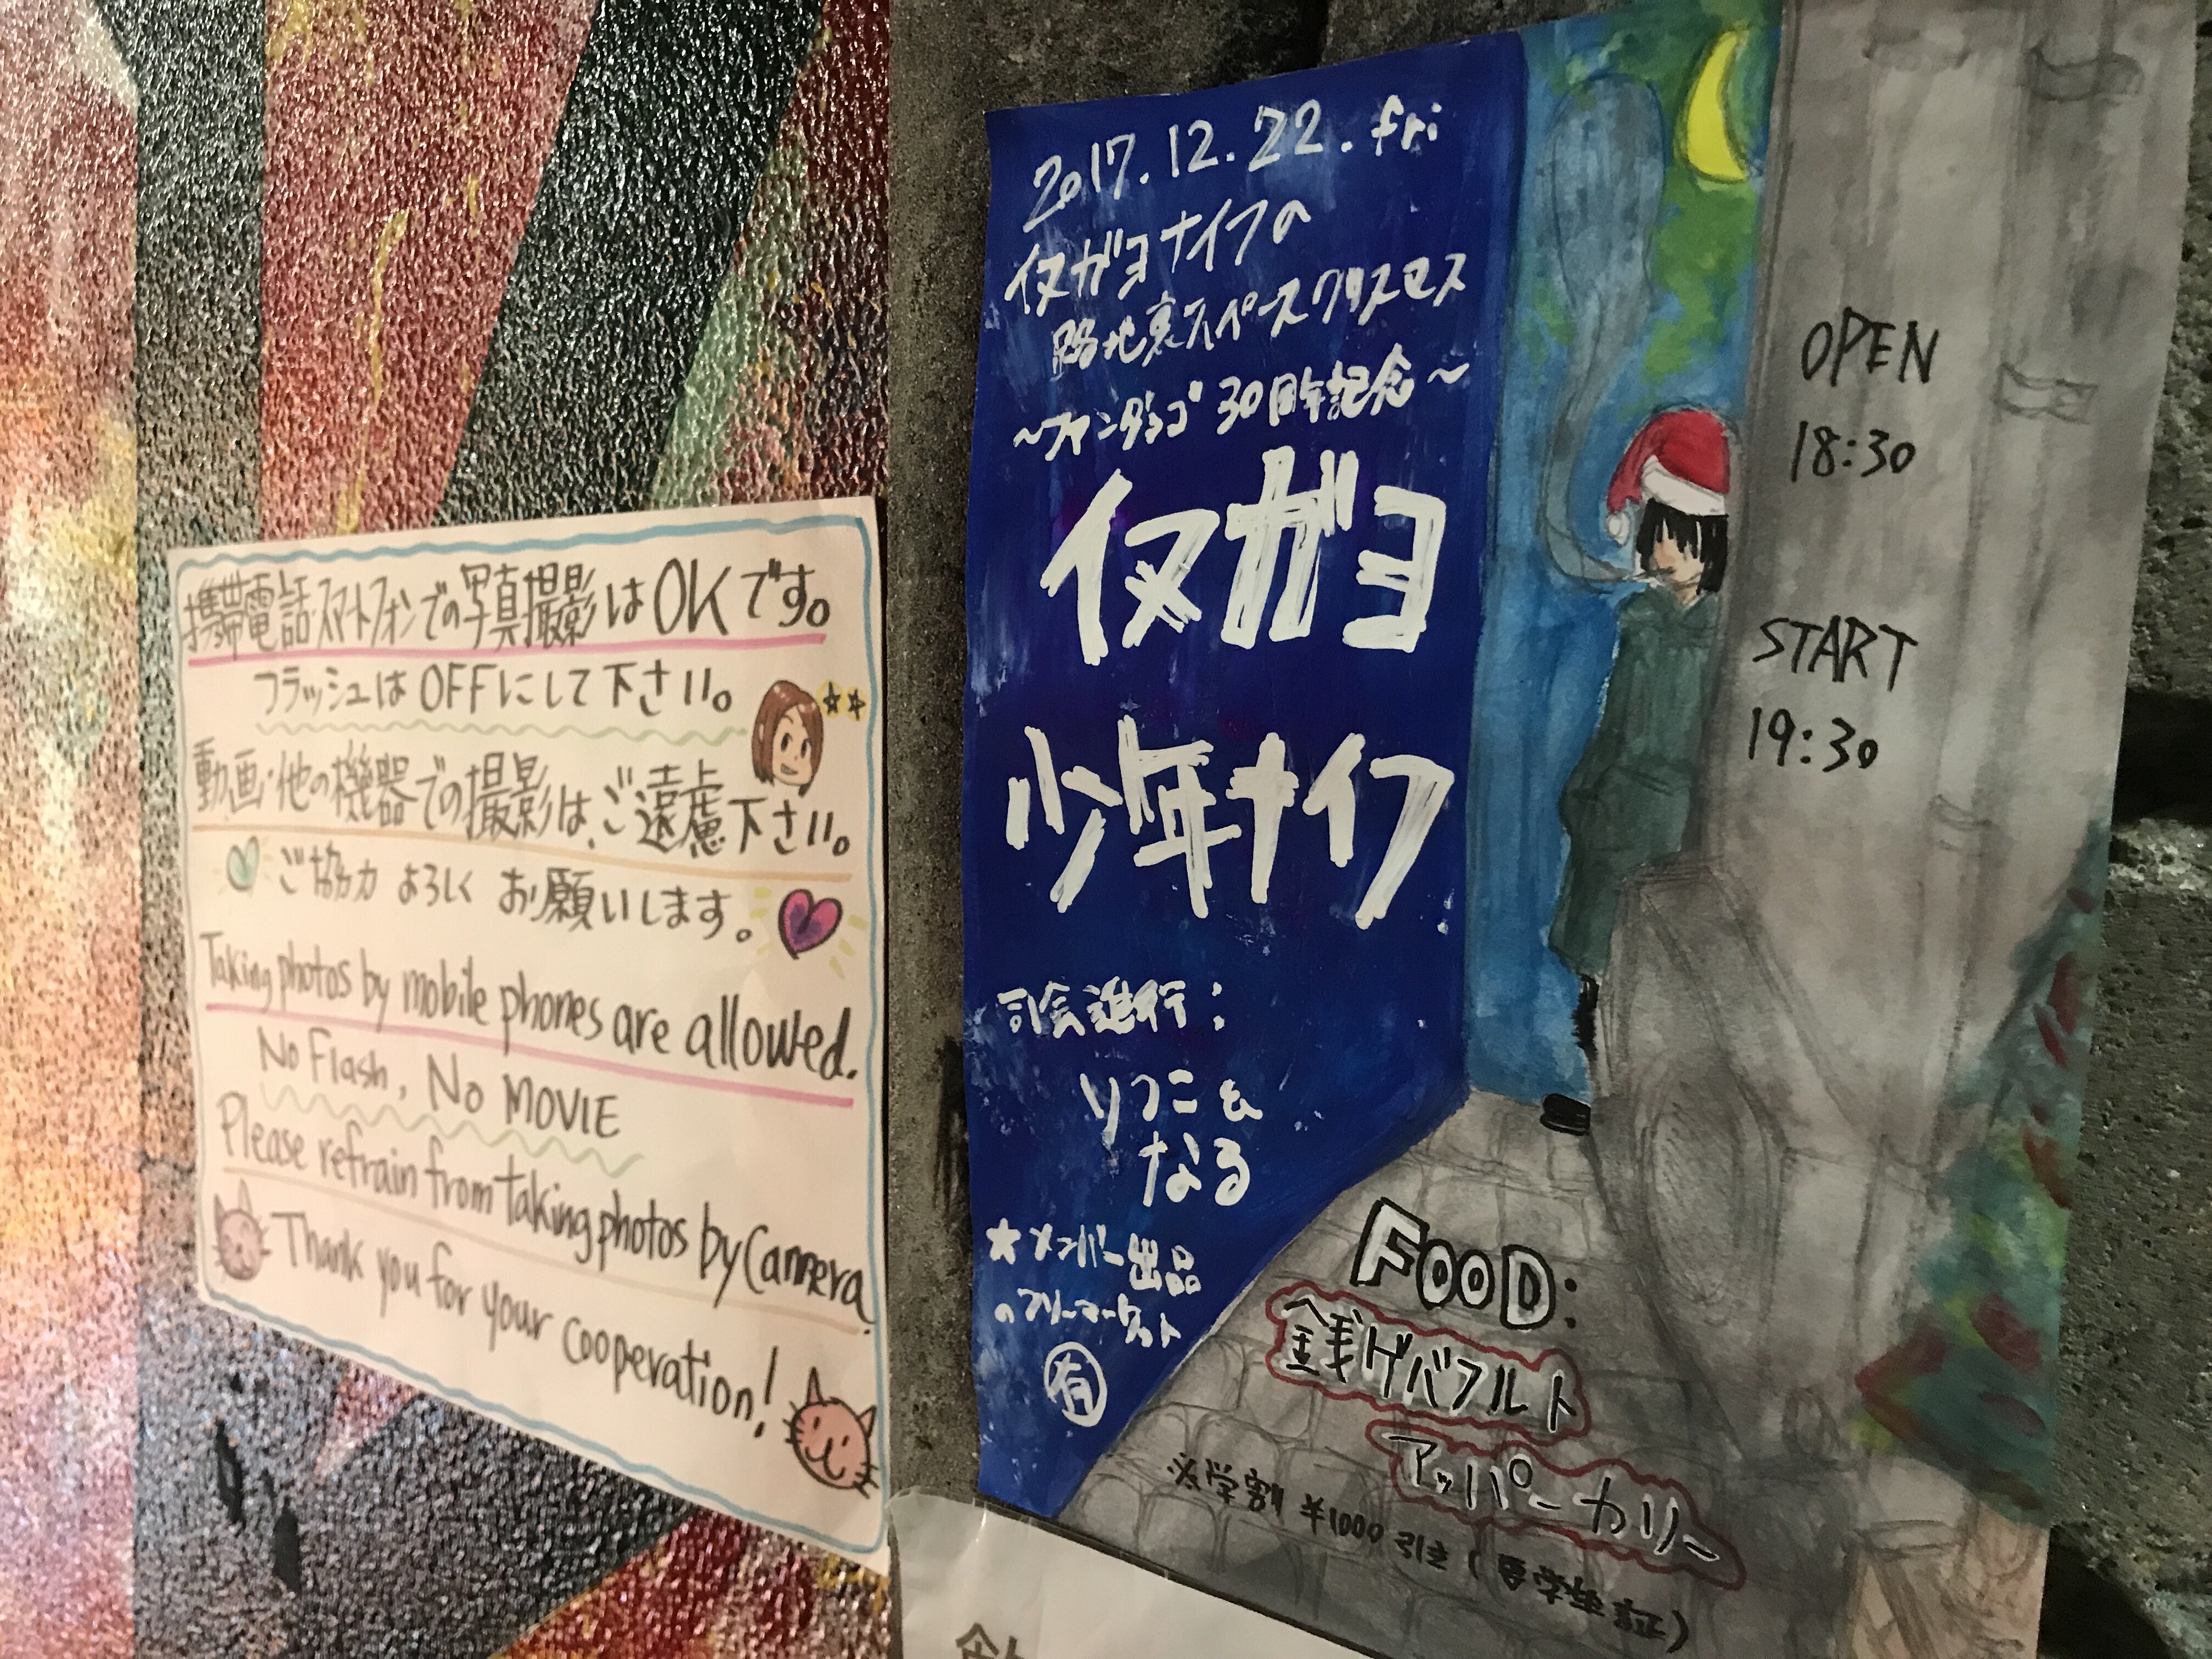 携帯電話・スマートフォンでの写真撮影はOKです。
フラッシュはOFFにして下さい。
動画・他の機器での撮影は、ご遠慮下さい。
ご協力 よろしく お願いします。
Taking photos by mobile phones are allowed.
No Flash, No MOVIE
Please refrain from taking photos by Camera.
Thank you for your cooperation!
2017.12.22.fri
イヌガヨナイフの
路地裏スペースクリスマス
〜ファンダンゴ30周年記念〜
イヌガヨ
少年ナイフ
司会進行:
りつこ&
なる
★メンバー出品
のフリーマーケット
有
OPEN
18:30
START
19:30
FOOD:
銭ゲバフルト
アッパーカリー
学割 ¥1000 引き (要学生証)